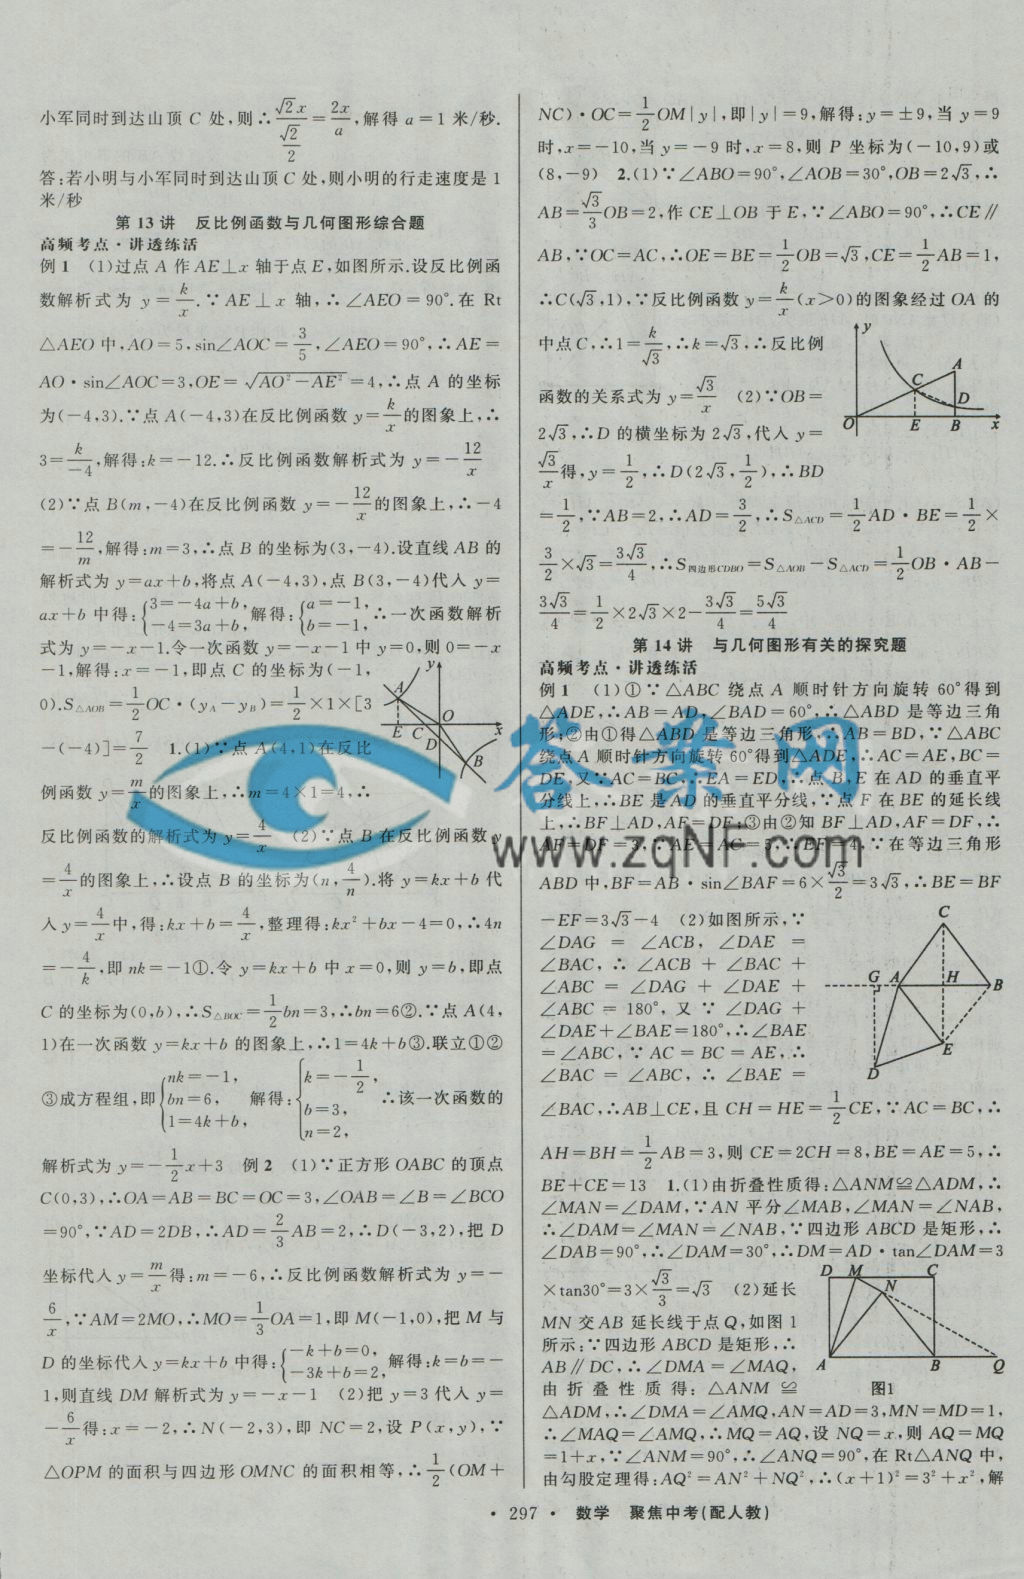 小军同时到达山顶 C 处,则∴√2x/(√2/2)=2x/a,解得 a=1 米/秒.
答:若小明与小军同时到达山顶 C 处,则小明的行走速度是 1
米/秒
第 13 讲 反比例函数与几何图形综合题
高频考点·讲透练活
例 1 (1)过点 A 作 AE⊥x 轴于点 E,如图所示.设反比例函
数解析式为 y=k/x.∵AE⊥x 轴,∴∠AEO=90°.在 Rt
△AEO 中,AO=5,sin∠AOC=3/5,∠AEO=90°,∴AE=
AO·sin∠AOC=3,OE=√(AO²-AE²)=4,∴点 A 的坐标
为(-4,3).∵点 A(-4,3)在反比例函数 y=k/x的图象上,∴
3=k/-4,解得:k=-12.∴反比例函数解析式为 y=-12/x
(2)∵点 B(m,-4)在反比例函数 y=-12/x的图象上,∴-4
=-12/m,解得:m=3,∴点 B 的坐标为(3,-4).设直线 AB 的
解析式为 y=ax+b,将点 A(-4,3),点 B(3,-4)代入 y=
ax+b 中得:{3=-4a+b, -4=3a+b, 解得:{a=-1, b=-1, ∴一次函数解析
式为 y=-x-1.令一次函数 y=-x-1 中 y=0,则 0=-x
-1,解得:x=-1,即点 C 的坐标为(-1,
0).S△AOB=1/2OC·(yA-yB)=1/2×1×[3
-(-4)]=7/2 1.(1)∵点 A(4,1)在反比
例函数 y=m/x的图象上,∴m=4×1=4,∴
反比例函数的解析式为 y=4/x (2)∵点 B 在反比例函数 y
=4/x的图象上,∴设点 B 的坐标为(n,4/n).将 y=kx+b 代
入 y=4/x中,得:kx+b=4/x,整理得:kx²+bx-4=0,∴4n
=-4/k,即 nk=-1①.令 y=kx+b 中 x=0,则 y=b,即点
C 的坐标为(0,b),∴S△BOC=1/2bn=3,∴bn=6②.∵点 A(4,
1)在一次函数 y=kx+b 的图象上,∴1=4k+b③.联立①②
③成方程组,即{nk=-1, bn=6, 1=4k+b, 解得:{k=-1/2, b=3, n=2, ∴该一次函数的
解析式为 y=-1/2x+3 例 2 (1)∵正方形 OABC 的顶点
C(0,3),∴OA=AB=BC=OC=3,∠OAB=∠B=∠BCO
=90°,∵AD=2DB,∴AD=2/3AB=2,∴D(-3,2),把 D
坐标代入 y=m/x得:m=-6,∴反比例函数解析式为 y=-
6/x,∵AM=2MO,∴MO=1/3OA=1,即 M(-1,0),把 M 与
D 的坐标代入 y=kx+b 中得:{-k+b=0, -3k+b=2, 解得:k=b=-
1,则直线 DM 解析式为 y=-x-1 (2)把 y=3 代入 y=
-6/x得:x=-2,∴N(-2,3),即 NC=2,设 P(x,y),∵
△OPM 的面积与四边形 OMNC 的面积相等,∴1/2(OM+
y
A
O
E
C
D
x
B
NC)·OC=1/2OM|y|,即|y|=9,解得:y=±9,当 y=9
时,x=-10,当 y=-9 时,x=8,则 P 坐标为(-10,9)或
(8,-9) 2.(1)∵∠ABO=90°,∠AOB=30°,OB=2√3,∴
AB=√3/3OB=2,作 CE⊥OB 于 E,∵∠ABO=90°,∴CE∥
AB,∵OC=AC,∴OE=BE=1/2OB=√3,CE=1/2AB=1,
∴C(√3,1),∵反比例函数 y=k/x(x>0)的图象经过 OA 的
中点 C,∴1=k/√3,∴k=√3,∴反比例
函数的关系式为 y=√3/x (2)∵OB=
2√3,∴D 的横坐标为 2√3,代入 y=
√3/x得,y=1/2,∴D(2√3,1/2),∴BD
=1/2,∵AB=2,∴AD=3/2,∴S△ACD=1/2AD·BE=1/2×
3/2×√3=3√3/4,∴S四边形CDBO=S△AOB-S△ACD=1/2OB·AB-
3√3/4=1/2×2√3×2-3√3/4=5√3/4
y
A
C
D
O
E
B
x
第 14 讲 与几何图形有关的探究题
高频考点·讲透练活
例 1 (1)①∵△ABC 绕点 A 顺时针方向旋转 60°得到
△ADE,∴AB=AD,∠BAD=60°,∴△ABD 是等边三角
形;②由①得△ABD 是等边三角形,∴AB=BD,∵△ABC
绕点 A 顺时针方向旋转 60°得到△ADE,∴AC=AE,BC=
DE,又∵AC=BC,∴EA=ED,∴点 B,E 在 AD 的垂直平
分线上,∴BE 是 AD 的垂直平分线,∵点 F 在 BE 的延长线
上,∴BF⊥AD,AF=DF;③由②知 BF⊥AD,AF=DF,∴
AF=DF=3,∵AE=AC=5,∴EF=4,∵在等边三角形
ABD 中,BF=AB·sin∠BAF=6×√3/2=3√3,∴BE=BF
-EF=3√3-4 (2)如图所示,∵
∠DAG=∠ACB,∠DAE=
∠BAC,∴∠ACB+∠BAC+
∠ABC=∠DAG+∠DAE+
∠ABC=180°,又∵∠DAG+
∠DAE+∠BAE=180°,∴∠BAE
=∠ABC,∵AC=BC=AE,∴
∠BAC=∠ABC,∴∠BAE=
∠BAC,∴AB⊥CE,且 CH=HE=1/2CE,∵AC=BC,∴
AH=BH=1/2AB=3,则 CE=2CH=8,BE=AE=5,∴
BE+CE=13 1.(1)由折叠性质得:△ANM≌△ADM,∴
∠MAN=∠DAM,∵AN 平分∠MAB,∠MAN=∠NAB,
∴∠DAM=∠MAN=∠NAB,∵四边形 ABCD 是矩形,∴
∠DAB=90°,∴∠DAM=30°,∴DM=AD·tan∠DAM=3
×tan30°=3×√3/3=√3 (2)延长
MN 交 AB 延长线于点 Q,如图 1
所示:∵四边形 ABCD 是矩形,∴
AB∥DC,∴∠DMA=∠MAQ,
由折叠性质得:△ANM≌
△ADM,∴∠DMA=∠AMQ,AN=AD=3,MN=MD=1,
∴∠MAQ=∠AMQ,∴MQ=AQ,设 NQ=x,则 AQ=MQ
=1+x,∵∠ANM=90°,∴∠ANQ=90°,在 Rt△ANQ 中,
由勾股定理得:AQ²=AN²+NQ²,∴(x+1)²=3²+x²,解
C
G
A
H
B
E
D
D
M
C
N
A
B
Q
图1
答案网
www.zqNF.com
• 297 • 数学 聚焦中考(配人教)